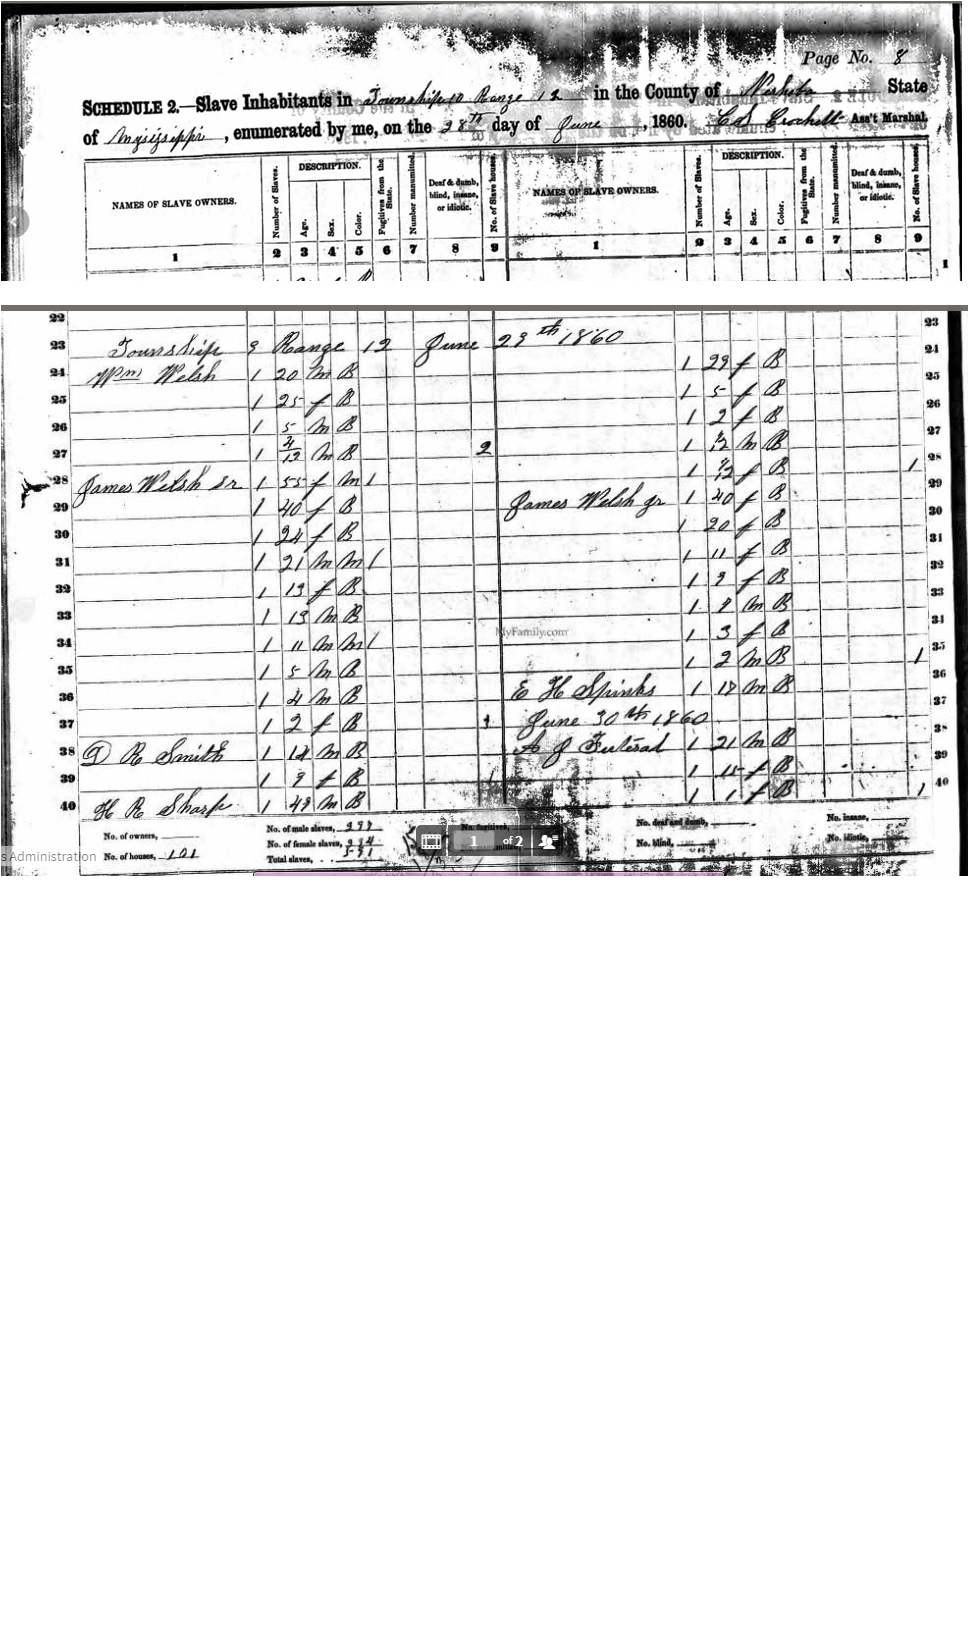 Page No. 8
SCHEDULE 2.—Slave Inhabitants in Township 10 Range 12 in the County of Neshoba State
of Mississippi, enumerated by me, on the 28th day of June, 1860. Crockett Ass't Marshal.
NAMES OF SLAVE OWNERS. Number of Slaves. DESCRIPTION. Age. Sex. Color. Fugitives from the State. Number manumitted. Deaf & dumb, blind, insane, or idiotic. No. of Slave houses. NAMES OF SLAVE OWNERS. Number of Slaves. DESCRIPTION. Age. Sex. Color. Fugitives from the State. Number manumitted. Deaf & dumb, blind, insane, or idiotic. No. of Slave houses.
1 2 3 4 5 6 7 8 9 1 2 3 4 5 6 7 8 9
1
22
23 Township 9 Range 12 June 29th 1860 23
24 Wm Welsh 1 20 m B 1 29 f B 24
25 1 25 f B 1 5 f B 25
26 1 5 m B 1 2 f B 26
27 1 4/12 m B 2 1 /12 m B 27
28 James Welsh Sr 1 55 f M 1 1 /12 f B 1 28
29 1 40 f B James Welsh Jr 1 40 f B 29
30 1 24 f B 1 20 f B 30
31 1 21 m M 1 1 11 f B 31
32 1 13 f B 1 9 f B 32
33 1 13 m B 1 8 m B 33
34 1 11 m M 1 1 3 f B 34
MyFamily.com
35 1 5 m B 1 2 m B 1 35
36 1 4 m B E H Spinks 1 18 m B 36
37 1 2 f B 1 June 30th 1860 37
38 D R Smith 1 14 m B A J 1 21 m B 38
39 1 9 f B 1 15 f B 39
40 H R Sharp 1 48 m B 1 1 f B 1 40
No. of owners, No. of male slaves, No. fugitives, No. deaf and dumb, No. insane,
No. of houses, 101 No. of female slaves, No. blind, No. idiotic,
Total slaves,
s Administration
1 of 2